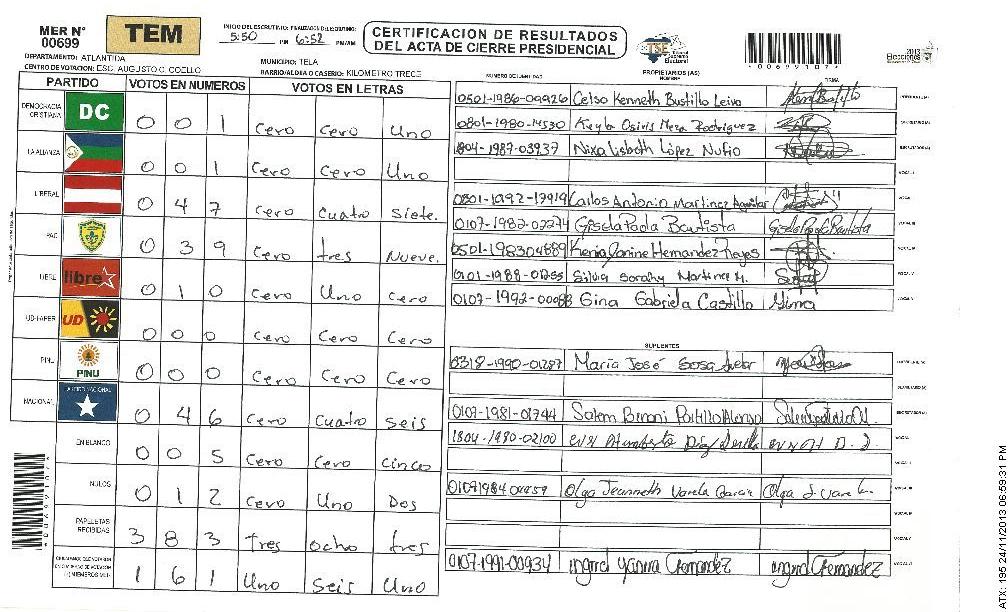 MER Nº
00699
TEM
INICIO DEL ESCRUTINIO: FINALIZACION DEL ESCRUTINIO:
5:50 PM 6:52 PM/AM
CERTIFICACION DE RESULTADOS
DEL ACTA DE CIERRE PRESIDENCIAL
TSE Tribunal Supremo Electoral
*00699107*
2013
Elecciones
DEPARTAMENTO: ATLANTIDA
MUNICIPIO: TELA
CENTRO DE VOTACION: ESC. AUGUSTO C. COELLO
BARRIO/ALDEA O CASERIO: KILOMETRO TRECE
PARTIDO VOTOS EN NUMEROS VOTOS EN LETRAS
DEMOCRACIA CRISTIANA DC 0 0 1 Cero Cero Uno
LA ALIANZA 0 0 1 Cero Cero Uno
LIBERAL 0 4 7 Cero Cuatro Siete.
PAC 0 3 9 Cero tres Nueve.
LIBRE libre 0 1 0 Cero Uno Cero
UD-FAPER UD 0 0 0 Cero Cero Cero
PINU PINU 0 0 0 Cero Cero Cero
NACIONAL PARTIDO NACIONAL 0 4 6 Cero Cuatro Seis
EN BLANCO 0 0 5 Cero Cero Cinco
NULOS 0 1 2 Cero Uno Dos
PAPELETAS RECIBIDAS 3 8 3 tres ocho tres
1 6 1 Uno Seis Uno
NUMERO DE IDENTIDAD PROPIETARIOS (AS) NOMBRE FIRMA
0501-1986-09926 Celso Kenneth Bustillo Leiva
0801-1980-14530 Keyla Osiris Meza Rodriguez
1804-1987-03937 Nixa Lisbeth López Nuño
0801-1992-17919 Carlos Antonio Martinez Aguilar
0107-1982-02274 Gisela Paola Bautista Gisela Paola Bautista
0501-198304889 Kenia Janine Hernandez Reyes
Silvia Sorahy Martinez M.
0107-1992-00088 Gina Gabriela Castillo Gina
SUPLENTES
0318-1990-01287 María José Sosa
0107-1981-01744
1804-1980-02100
Olga Jeanneth Varela Garcia Olga J. Varela
0107-1991-00934 ingrid Yanira Fernandez ingrid Fernandez
*00699107*
ATX: 195 24/11/2013 06:59:31 PM